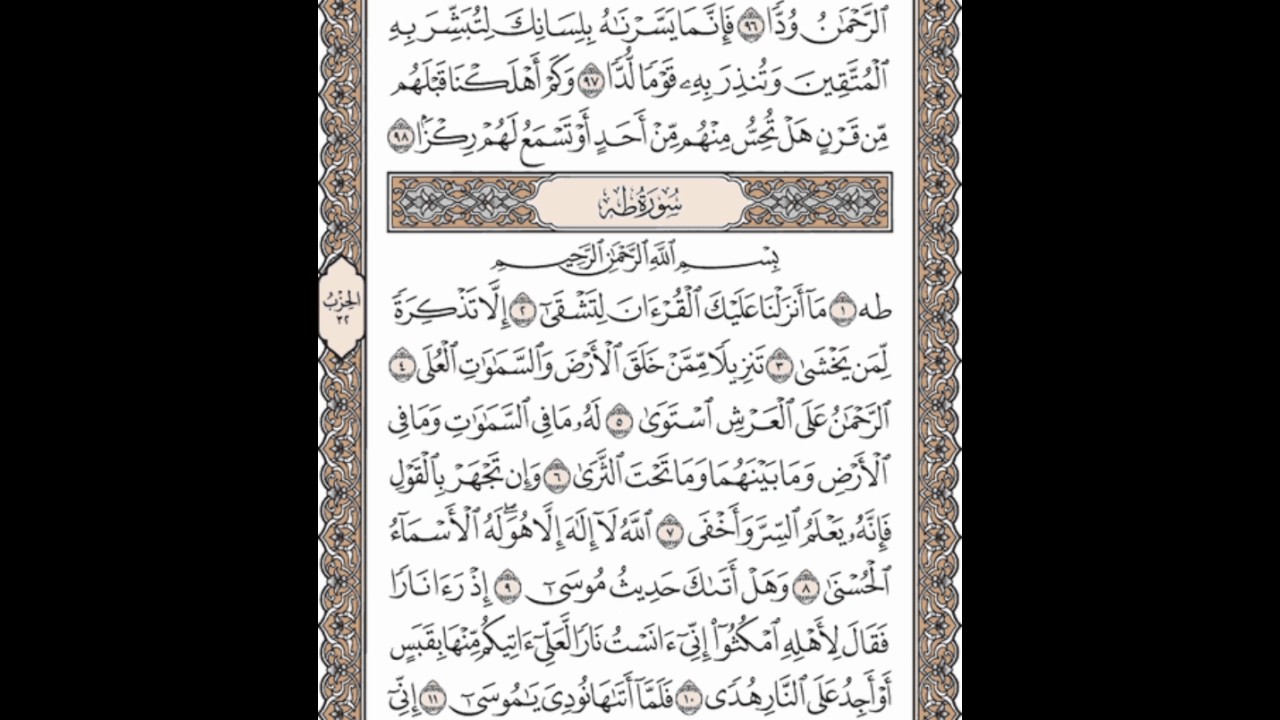 ٱلرَّحۡمَٰنُ وُدّٗا ٩٦ فَإِنَّمَا يَسَّرۡنَٰهُ بِلِسَانِكَ لِتُبَشِّرَ بِهِ
ٱلۡمُتَّقِينَ وَتُنذِرَ بِهِۦ قَوۡمٗا لُّدّٗا ٩٧ وَكَمۡ أَهۡلَكۡنَا قَبۡلَهُم
مِّن قَرۡنٍ هَلۡ تُحِسُّ مِنۡهُم مِّنۡ أَحَدٍ أَوۡ تَسۡمَعُ لَهُمۡ رِكۡزَۢا ٩٨
سُورَةُ طه
بِسۡمِ ٱللَّهِ ٱلرَّحۡمَٰنِ ٱلرَّحِيمِ
طه ١ مَآ أَنزَلۡنَا عَلَيۡكَ ٱلۡقُرۡءَانَ لِتَشۡقَىٰٓ ٢ إِلَّا تَذۡكِرَةٗ
لِّمَن يَخۡشَىٰ ٣ تَنزِيلٗا مِّمَّنۡ خَلَقَ ٱلۡأَرۡضَ وَٱلسَّمَٰوَٰتِ ٱلۡعُلَى ٤
ٱلرَّحۡمَٰنُ عَلَى ٱلۡعَرۡشِ ٱسۡتَوَىٰ ٥ لَهُۥ مَا فِي ٱلسَّمَٰوَٰتِ وَمَا فِي
ٱلۡأَرۡضِ وَمَا بَيۡنَهُمَا وَمَا تَحۡتَ ٱلثَّرَىٰ ٦ وَإِن تَجۡهَرۡ بِٱلۡقَوۡلِ
فَإِنَّهُۥ يَعۡلَمُ ٱلسِّرَّ وَأَخۡفَى ٧ ٱللَّهُ لَآ إِلَٰهَ إِلَّا هُوَۖ لَهُ ٱلۡأَسۡمَآءُ
ٱلۡحُسۡنَىٰ ٨ وَهَلۡ أَتَىٰكَ حَدِيثُ مُوسَىٰٓ ٩ إِذۡ رَءَا نَارٗا
فَقَالَ لِأَهۡلِهِ ٱمۡكُثُوٓاْ إِنِّيٓ ءَانَسۡتُ نَارٗا لَّعَلِّيٓ ءَاتِيكُم مِّنۡهَا بِقَبَسٍ
أَوۡ أَجِدُ عَلَى ٱلنَّارِ هُدٗى ١٠ فَلَمَّآ أَتَىٰهَا نُودِيَ يَٰمُوسَىٰٓ ١١ إِنِّيٓ
ٱلۡحِزۡبُ
٣٢